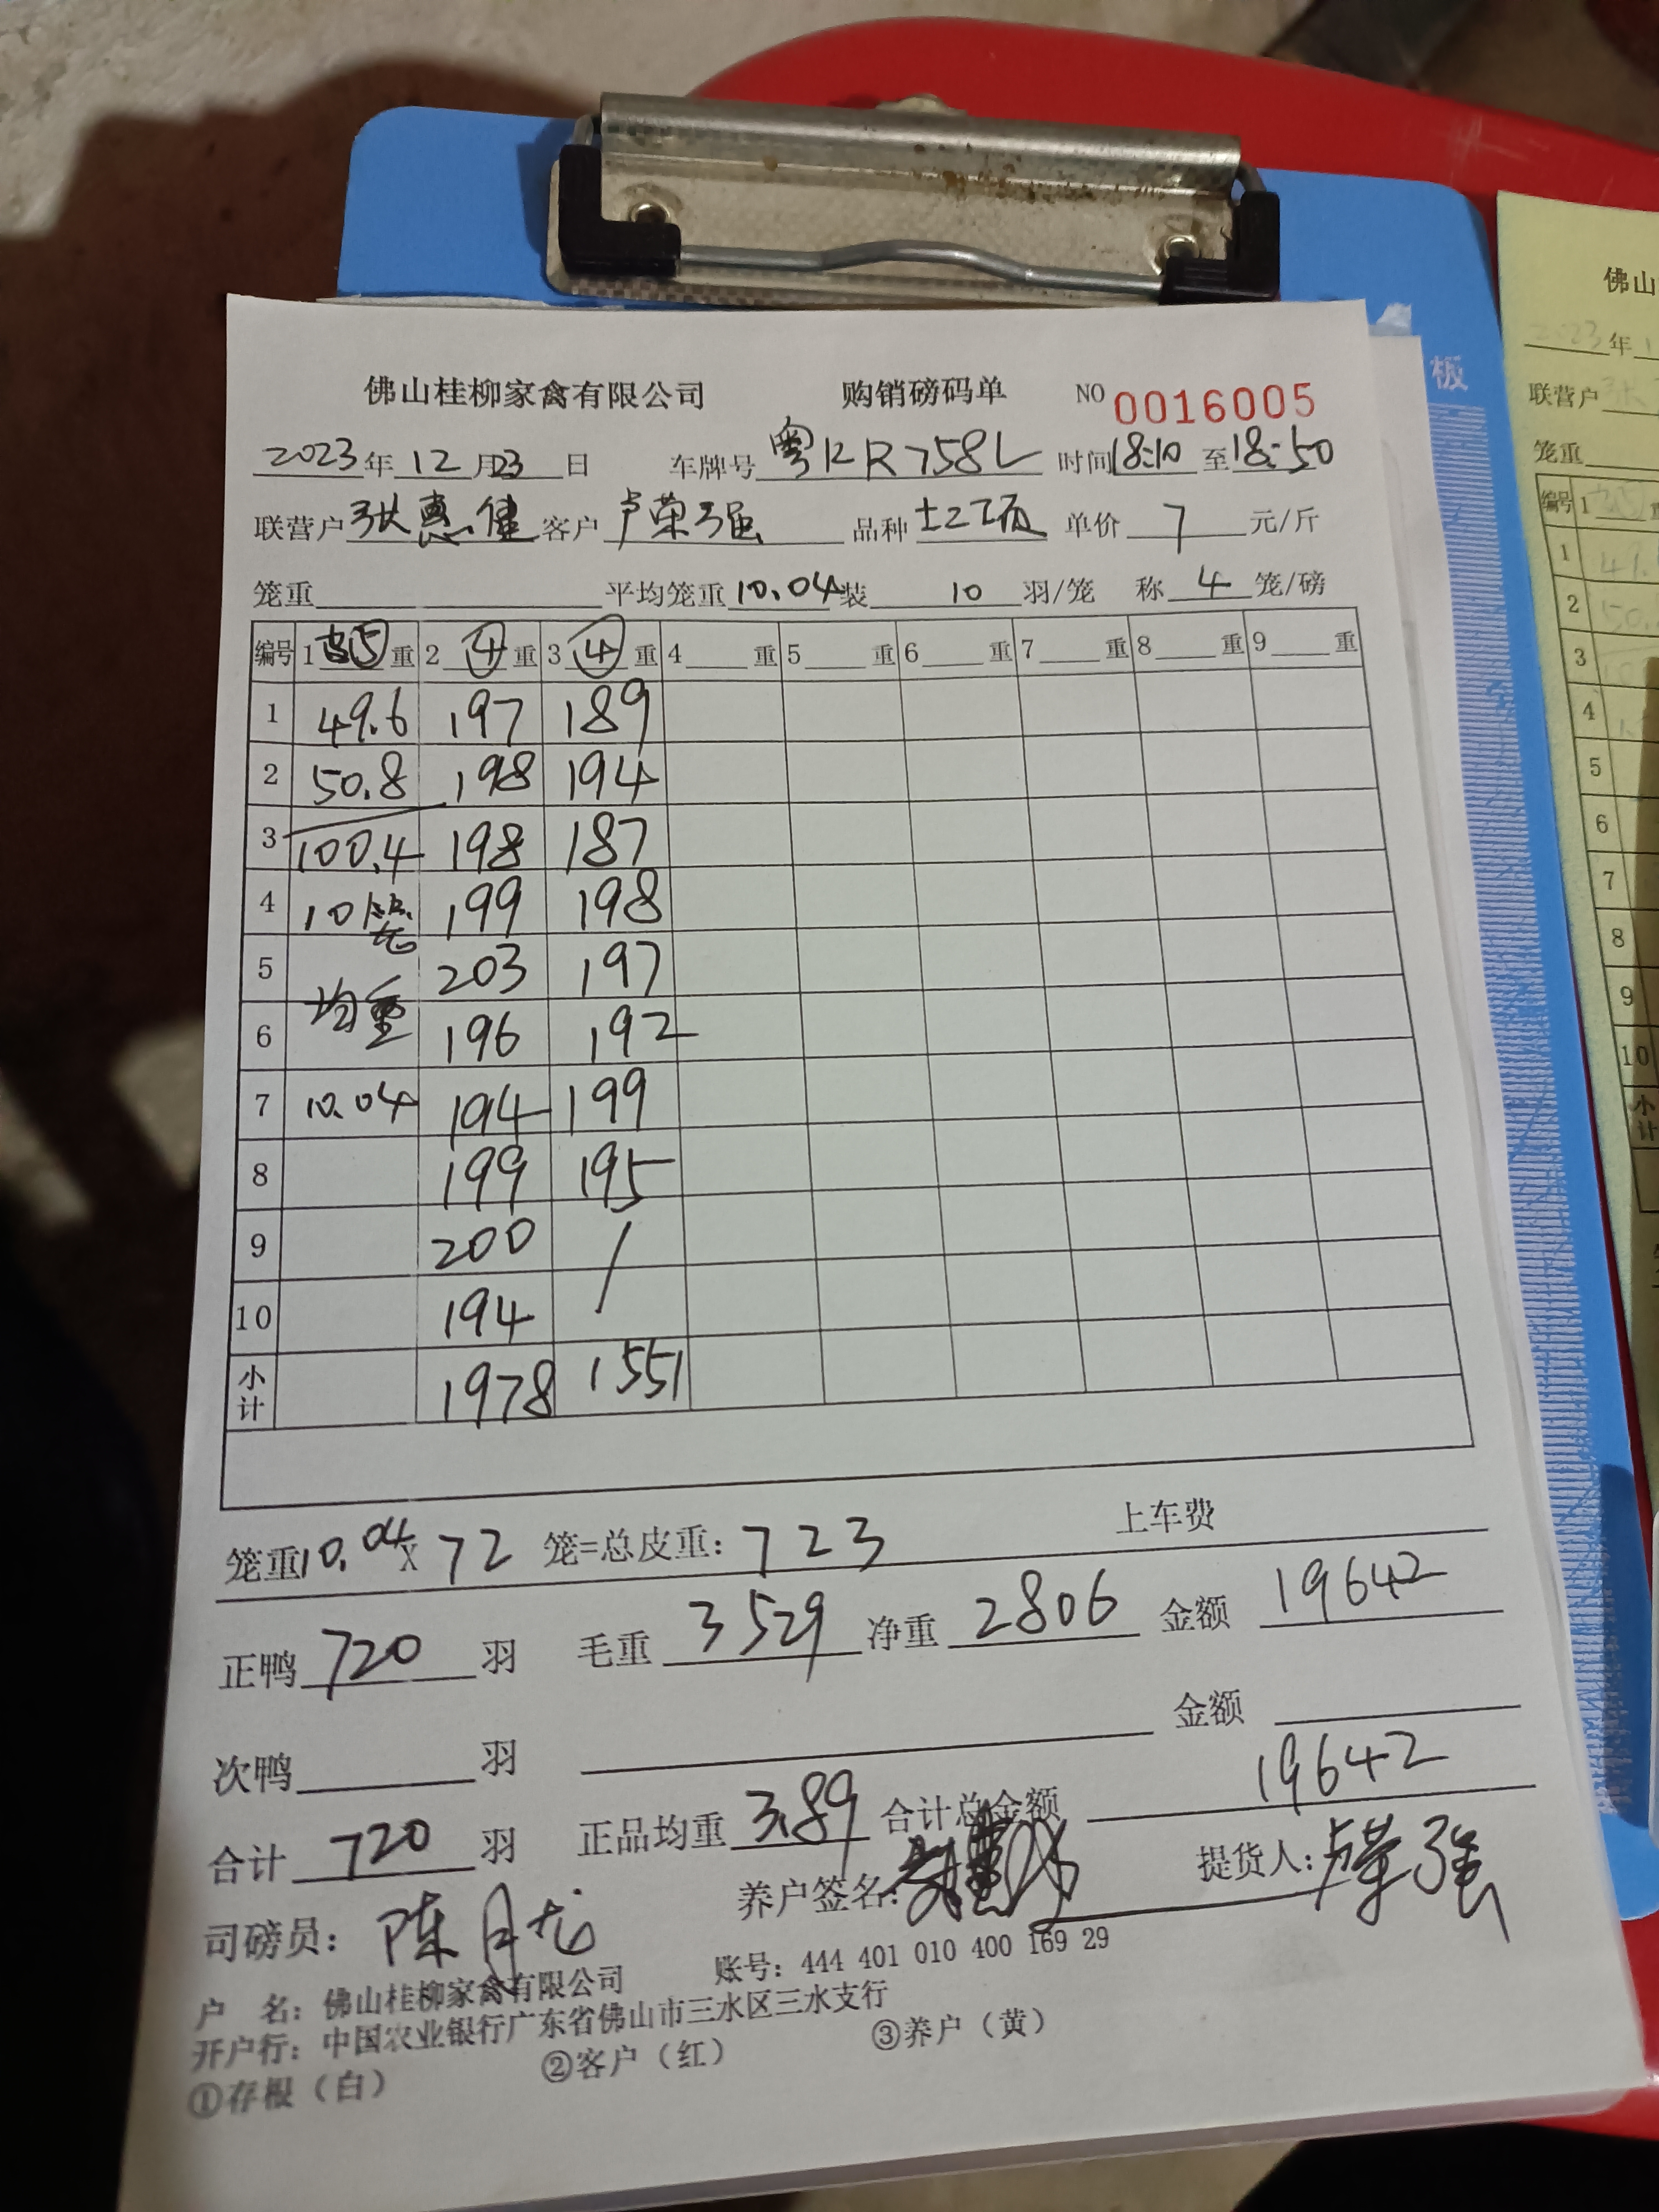 佛山桂柳家禽有限公司 购销磅码单 NO 0016005
2023年12月23日 车牌号粤RR758L 时间18:10至18:50
联营户张惠健 客户卢荣强 品种 单价7元/斤
笼重 平均笼重10.04装10羽/笼 称4笼/磅
编号 1皮⑤重 2④重 3④重 4重 5重 6重 7重 8重 9重
1 49.6 197 189
2 50.8 198 194
3 100.4 198 187
4 10笼 199 198
5 203 197
6 均重 196 192
7 10.04 194 199
8 199 195
9 200 /
10 194
小计 1978 1551
笼重10.04x72笼=总皮重:723 上车费
正鸭720羽 毛重3529净重2806金额19642
次鸭羽 金额
合计720羽 正品均重3.89合计总金额19642
司磅员:陈月龙 养户签名: 提货人:卢荣强
户 名:佛山桂柳家禽有限公司 账号:444 401 010 400 169 29
开户行:中国农业银行广东省佛山市三水区三水支行
①存根(白) ②客户(红) ③养户(黄)
板
佛山
2023年1
联营户张
笼重
编号 1
1 49.
2 50.
3
4
5
6
7
8
9
10
小计